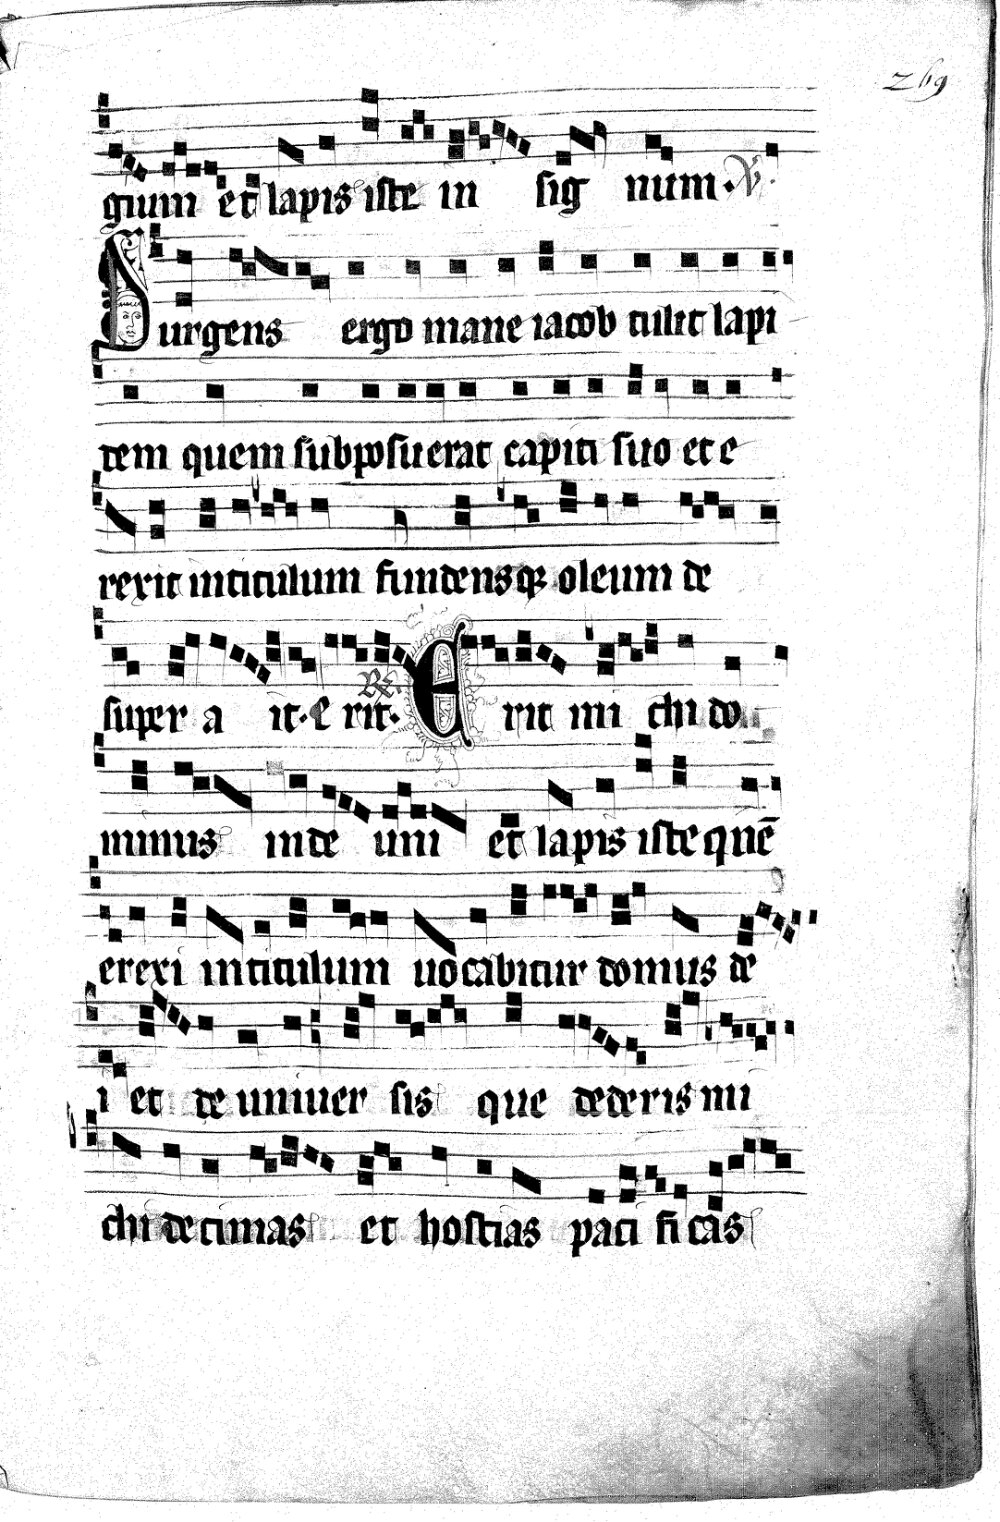 269
gium et lapis iste in sig num. V.
Surgens ergo mane iacob tulit lapi
dem quem subposuerat capiti suo et e
rexit intitulum fundensqȝ oleum de
super a it. E rit. R. Erit mi chi do
minus inde uni et lapis iste quē
erexi intitulum uocabitur domus de
i et de uniuer sis que dederis mi
chi decimas et hostias paci fi cas